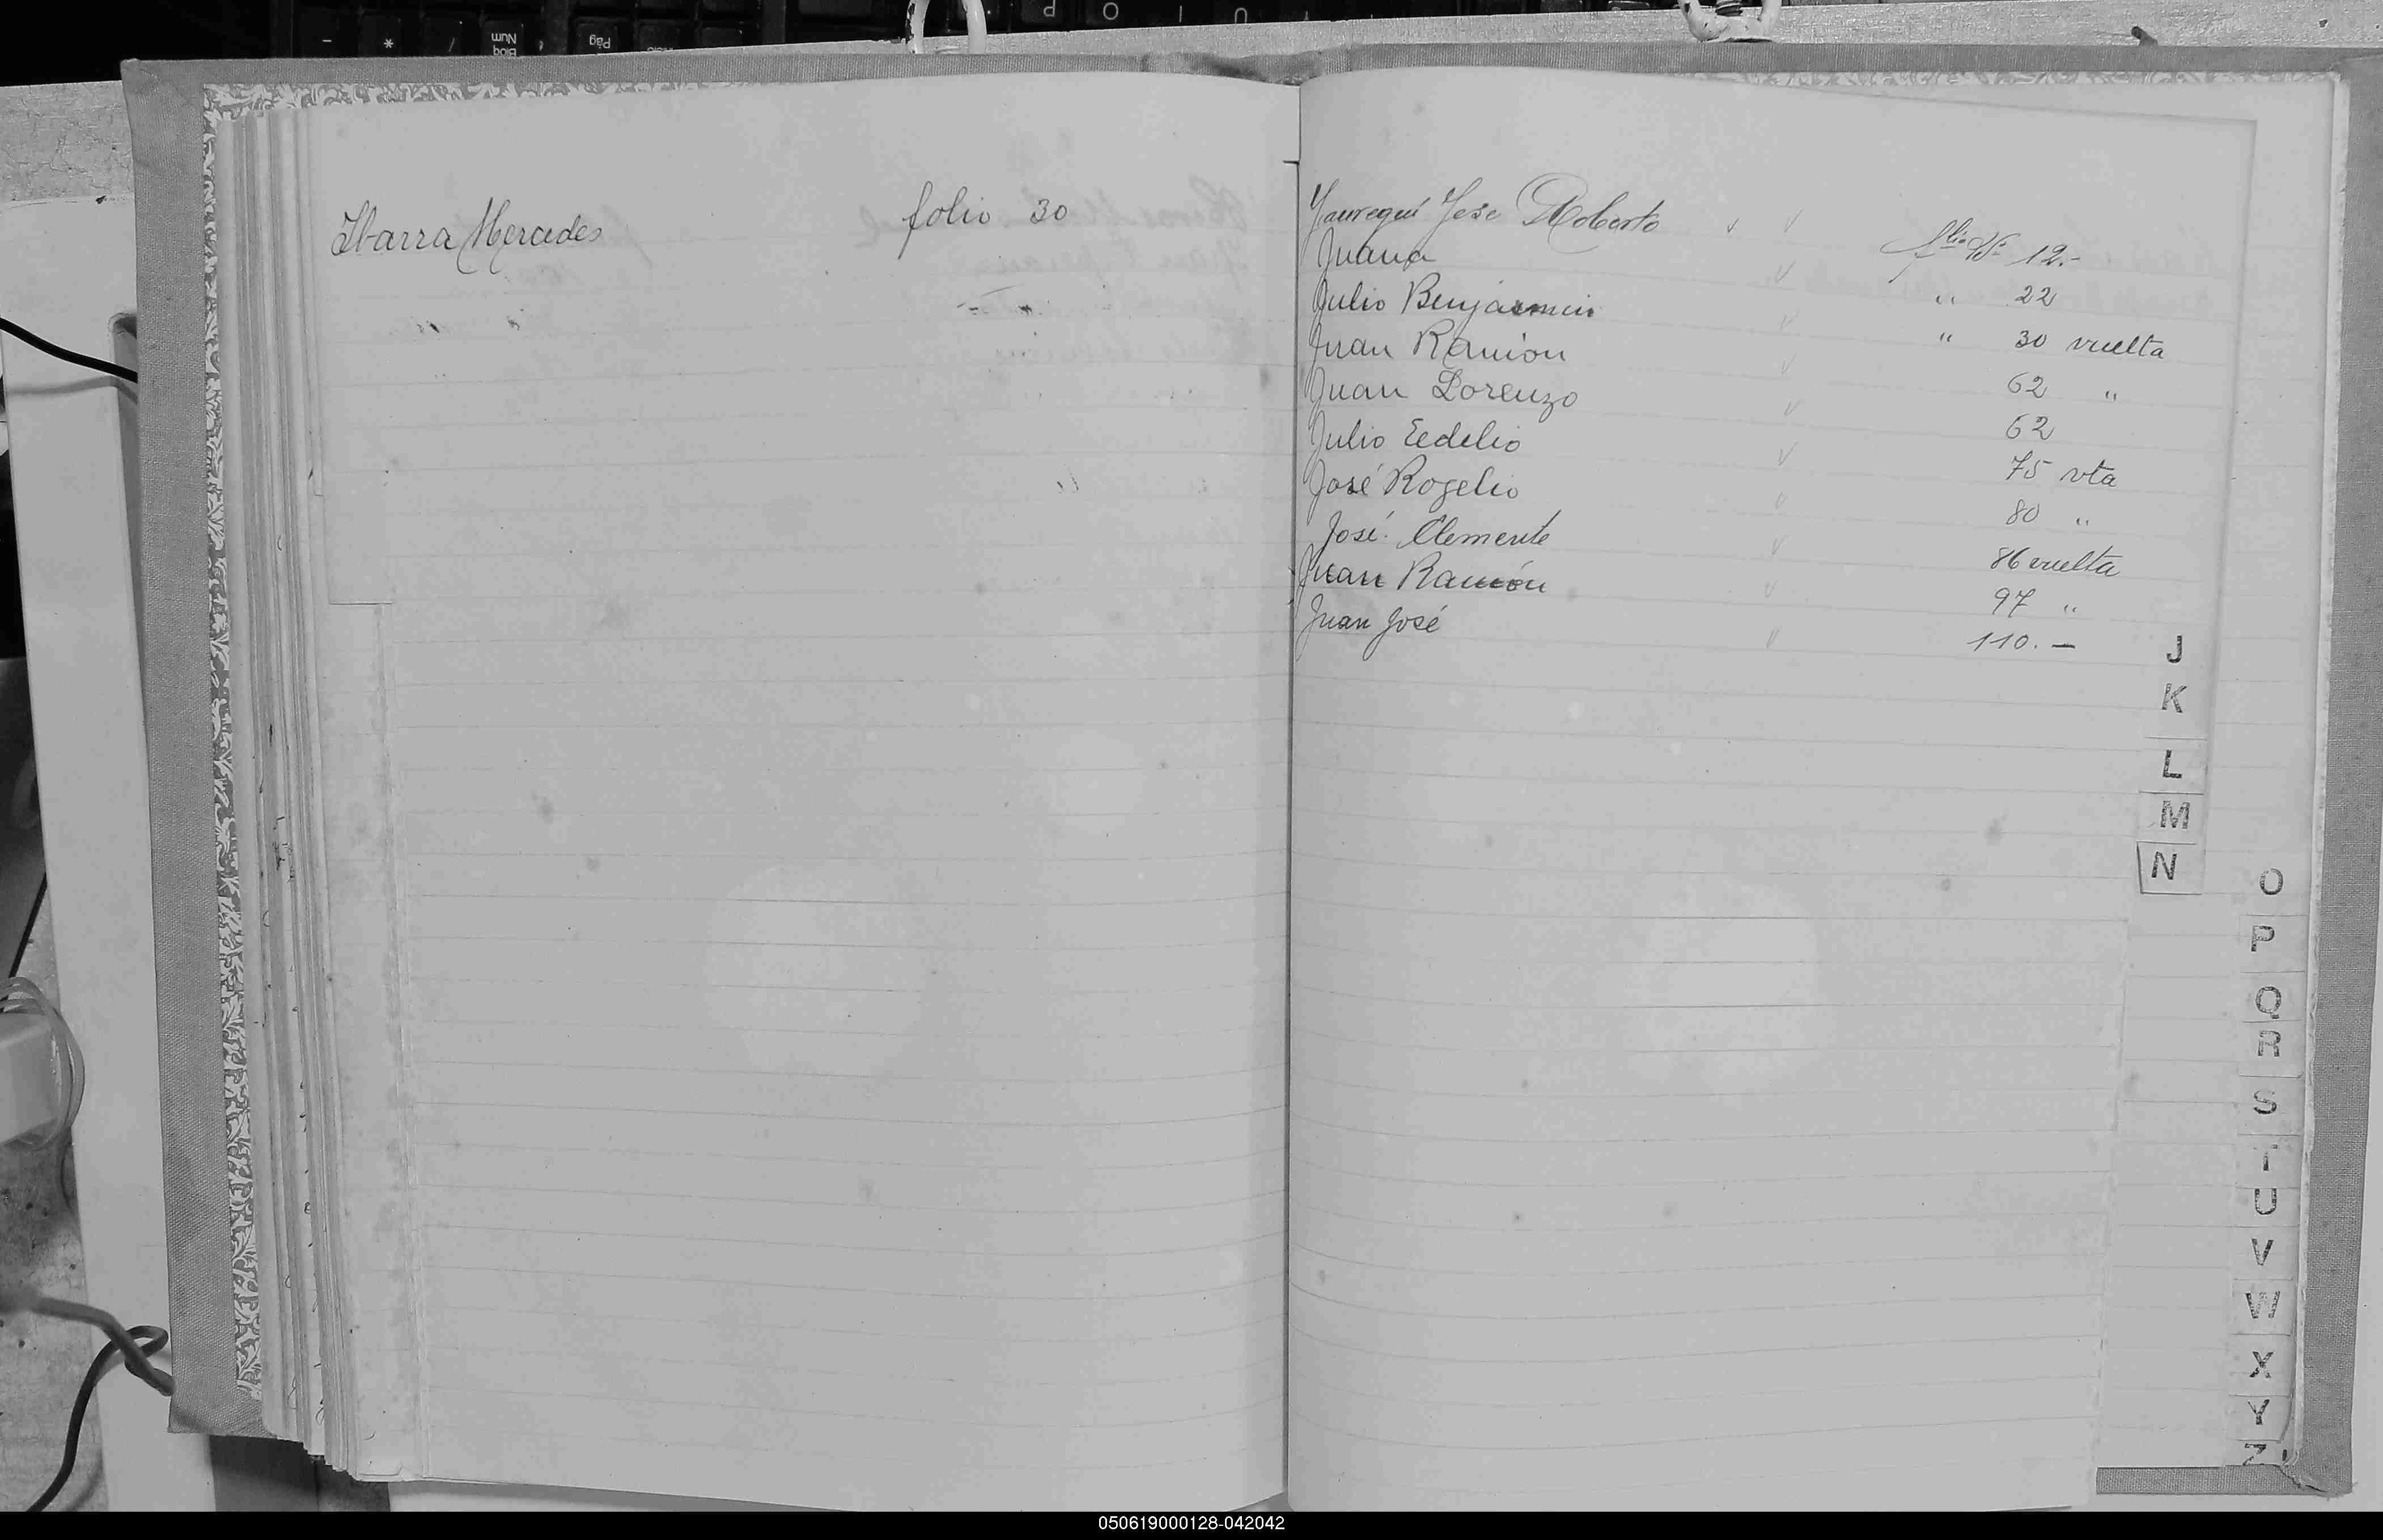 Ibarra Mercedes folio 30
Jauregui Jose Roberto flio Nº 12.-
Juana " 22
Julio Benjamin " 30 vuelta
Juan Ramón 62 "
Juan Lorenzo 62
Julio Eedelio 75 vta
José Rogelio 80 "
José Clemente 86 vuelta
Juan Ramón 97 "
Juan José 110.—
J
K
L
M
N
O
P
Q
R
S
T
U
V
W
X
Y
Z
050619000128-042042